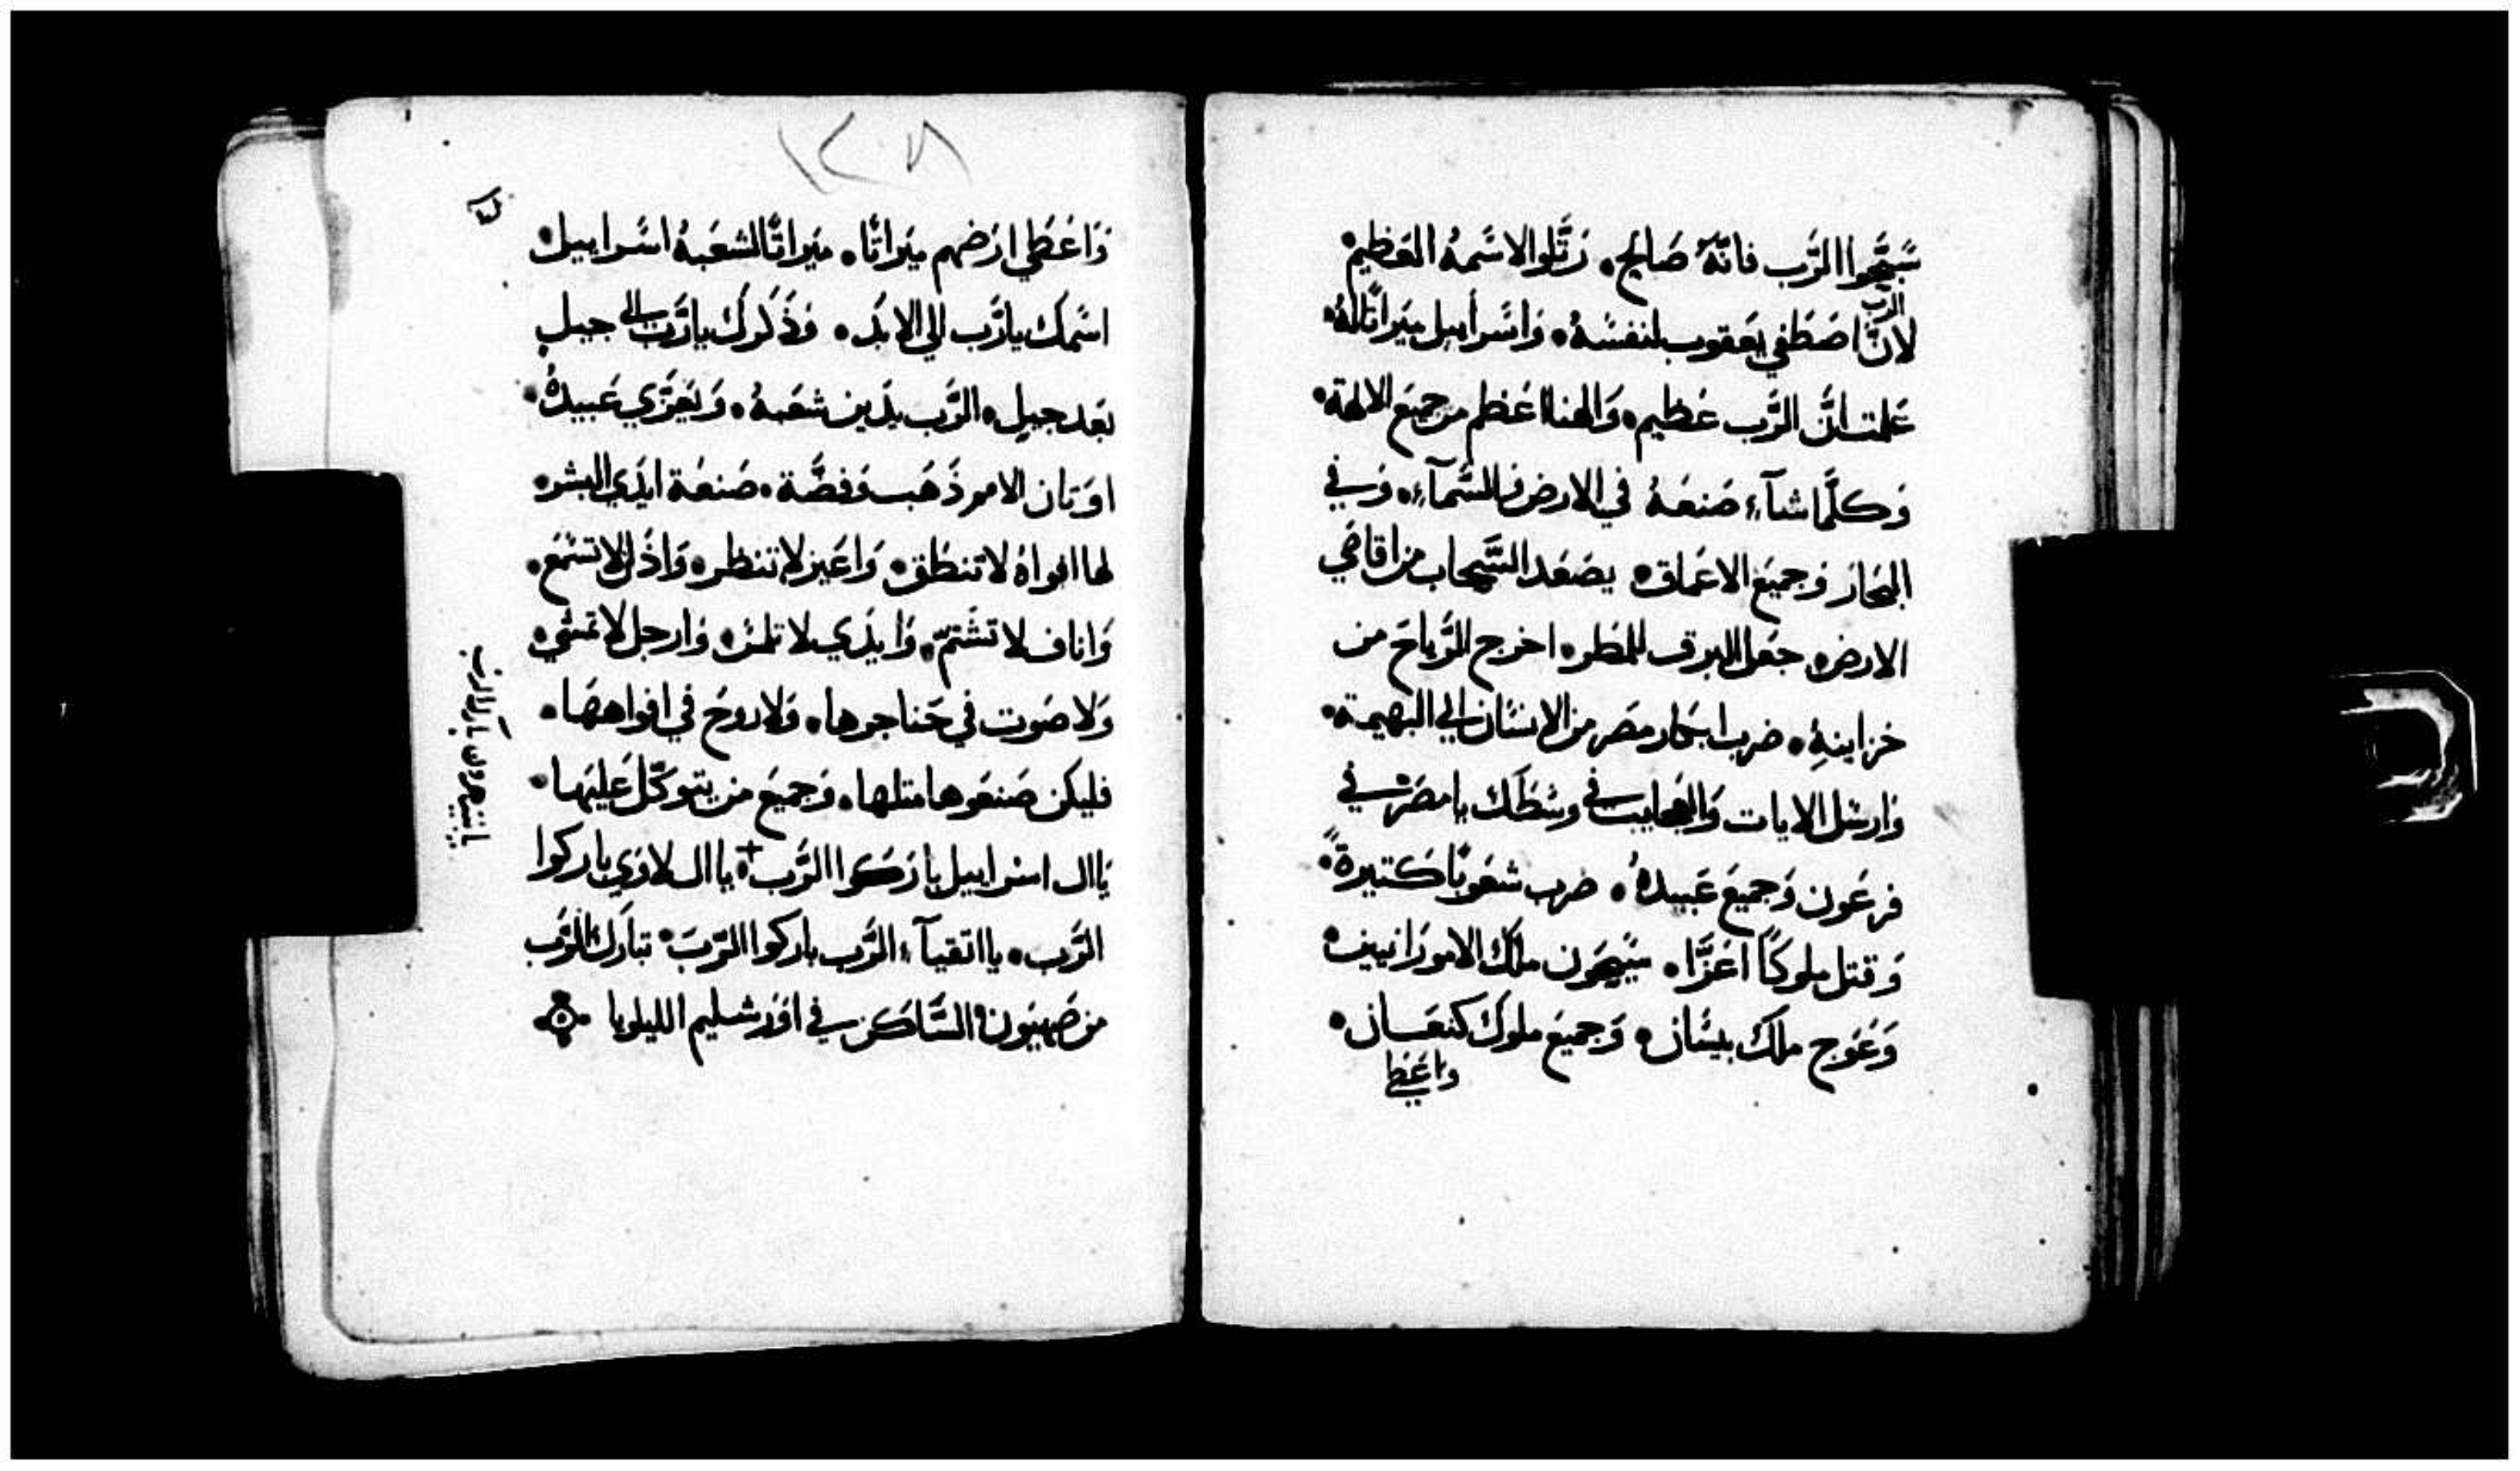 سَبِّحوا الرَّب فانّهُ صَالح. رَتِّلوا لاسَمهُ العَظيم
الرب
لانّ اصَطَفي يَعقوب لنفسَهُ. وَاسَراييل ميَراتًا لهُ.
عَلمت انَّ الرَّب عَظيم. وَالهنا اعَظم من جميَع الالهة.
وَكلَّما شآء صَنعَهُ في الارض وَالسَّمآء. وَفي
البحَار وَجميَع الاعَماق. يصَعَد السَّحاب من اقاصَي
الارض. جعَل البرق للمطَر. اخرج الرَّياحَ من
خزاينهِ. ضرب ابكار مصَر من الانسَان الي البهيمة.
وَارسَل الايات وَالعجايب في وسَطَك يا مصَر في
فرعَون وَجميعَ عَبيدهُ. ضرب شعَوبًا كتيرةً.
وَقتل ملوكًا اعَزَّا. سَيحَون ملك الامورَانيين.
وَعَوج ملَك بيسَان. وَجميعَ ملوك كنعَان.
واعَطي
وَاعَطَي ارَضهم ميَراتًا. ميَراتًا لشعَبهُ اسَراييل.
اسَمك يا رَّب الي الابَد. وَذَكرك يا رَّب الي جيل
بعَد جيلٍ. الرَّب يدَين شعَبهُ. وَيعَزَّي عَبيدهُ.
اوَتان الامم ذَهَب وَفضَّة. صَنعَة ايدَي البشر.
لها افواهُ لا تنطَق. وَاعَين لا تنظر. وَاذَان لا تسَمَع.
وَاناف لا تشَتمّ. وَايدَي لا تلمسَ. وَارجل لا تمشَي.
وَلا صَوت في حَناجرها. وَلا روحَ في افواههَا.
فليكن صَنعَوها متلها. وَجميَع من يتوكّل عَليَها.
يَا ال اسراييل بارَكوا الرَّب. يا ال لاوَي باركوا
الرَّب. يا اتقيآء الرَّب باركوا الرّبَ. تبارَك الرَّب
من صَهيَون السَّاكن في اوَرشليم الليلويا